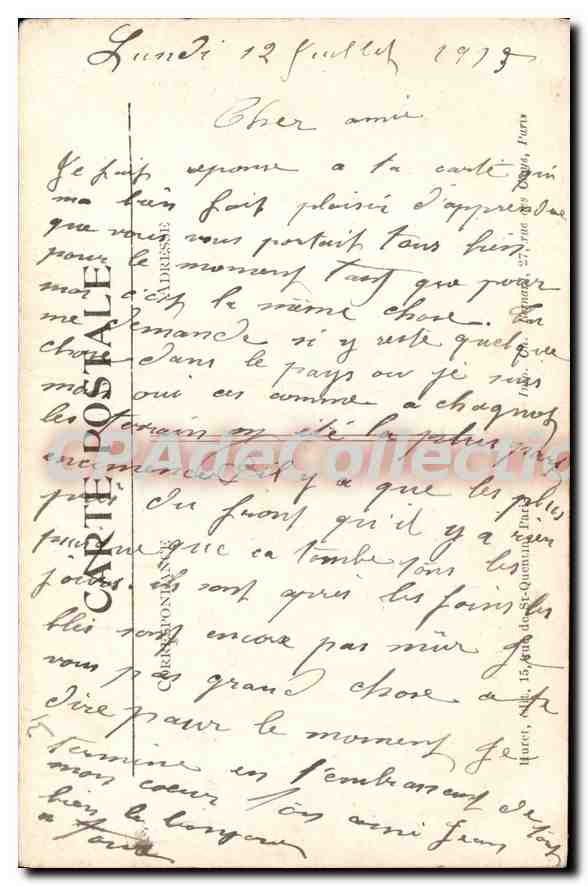 Lundi 12 Juillet 1915
Cher amie
Je fait reponse a ta carte qui
ma bien fait plaisir d'apprendre
que vous vous portait tous bien
pour le moment tant que pour
moi c'est la même chose. Tu
me demande si y reste quelque
chose dans le pays ou je suis
mais oui cas comme a
les terrain y été la plus part
encemence il y a que les plus
près du front qu'il y a rien
puisque que ca tombe tous les
jours. ils sont après les foins les
blés sont encore pas mûr Je
vois pas grand chose a te
dire pour le moment Je
termine en t'embrassant de tout
mon coeur ton ami Jean
bien le bonjour
a tous
CARTE POSTALE
CORRESPONDANCE
ADRESSE
Huret, édit., 15, rue de St-Quentin, Paris
27, rue des Paris
CPAdeCollection